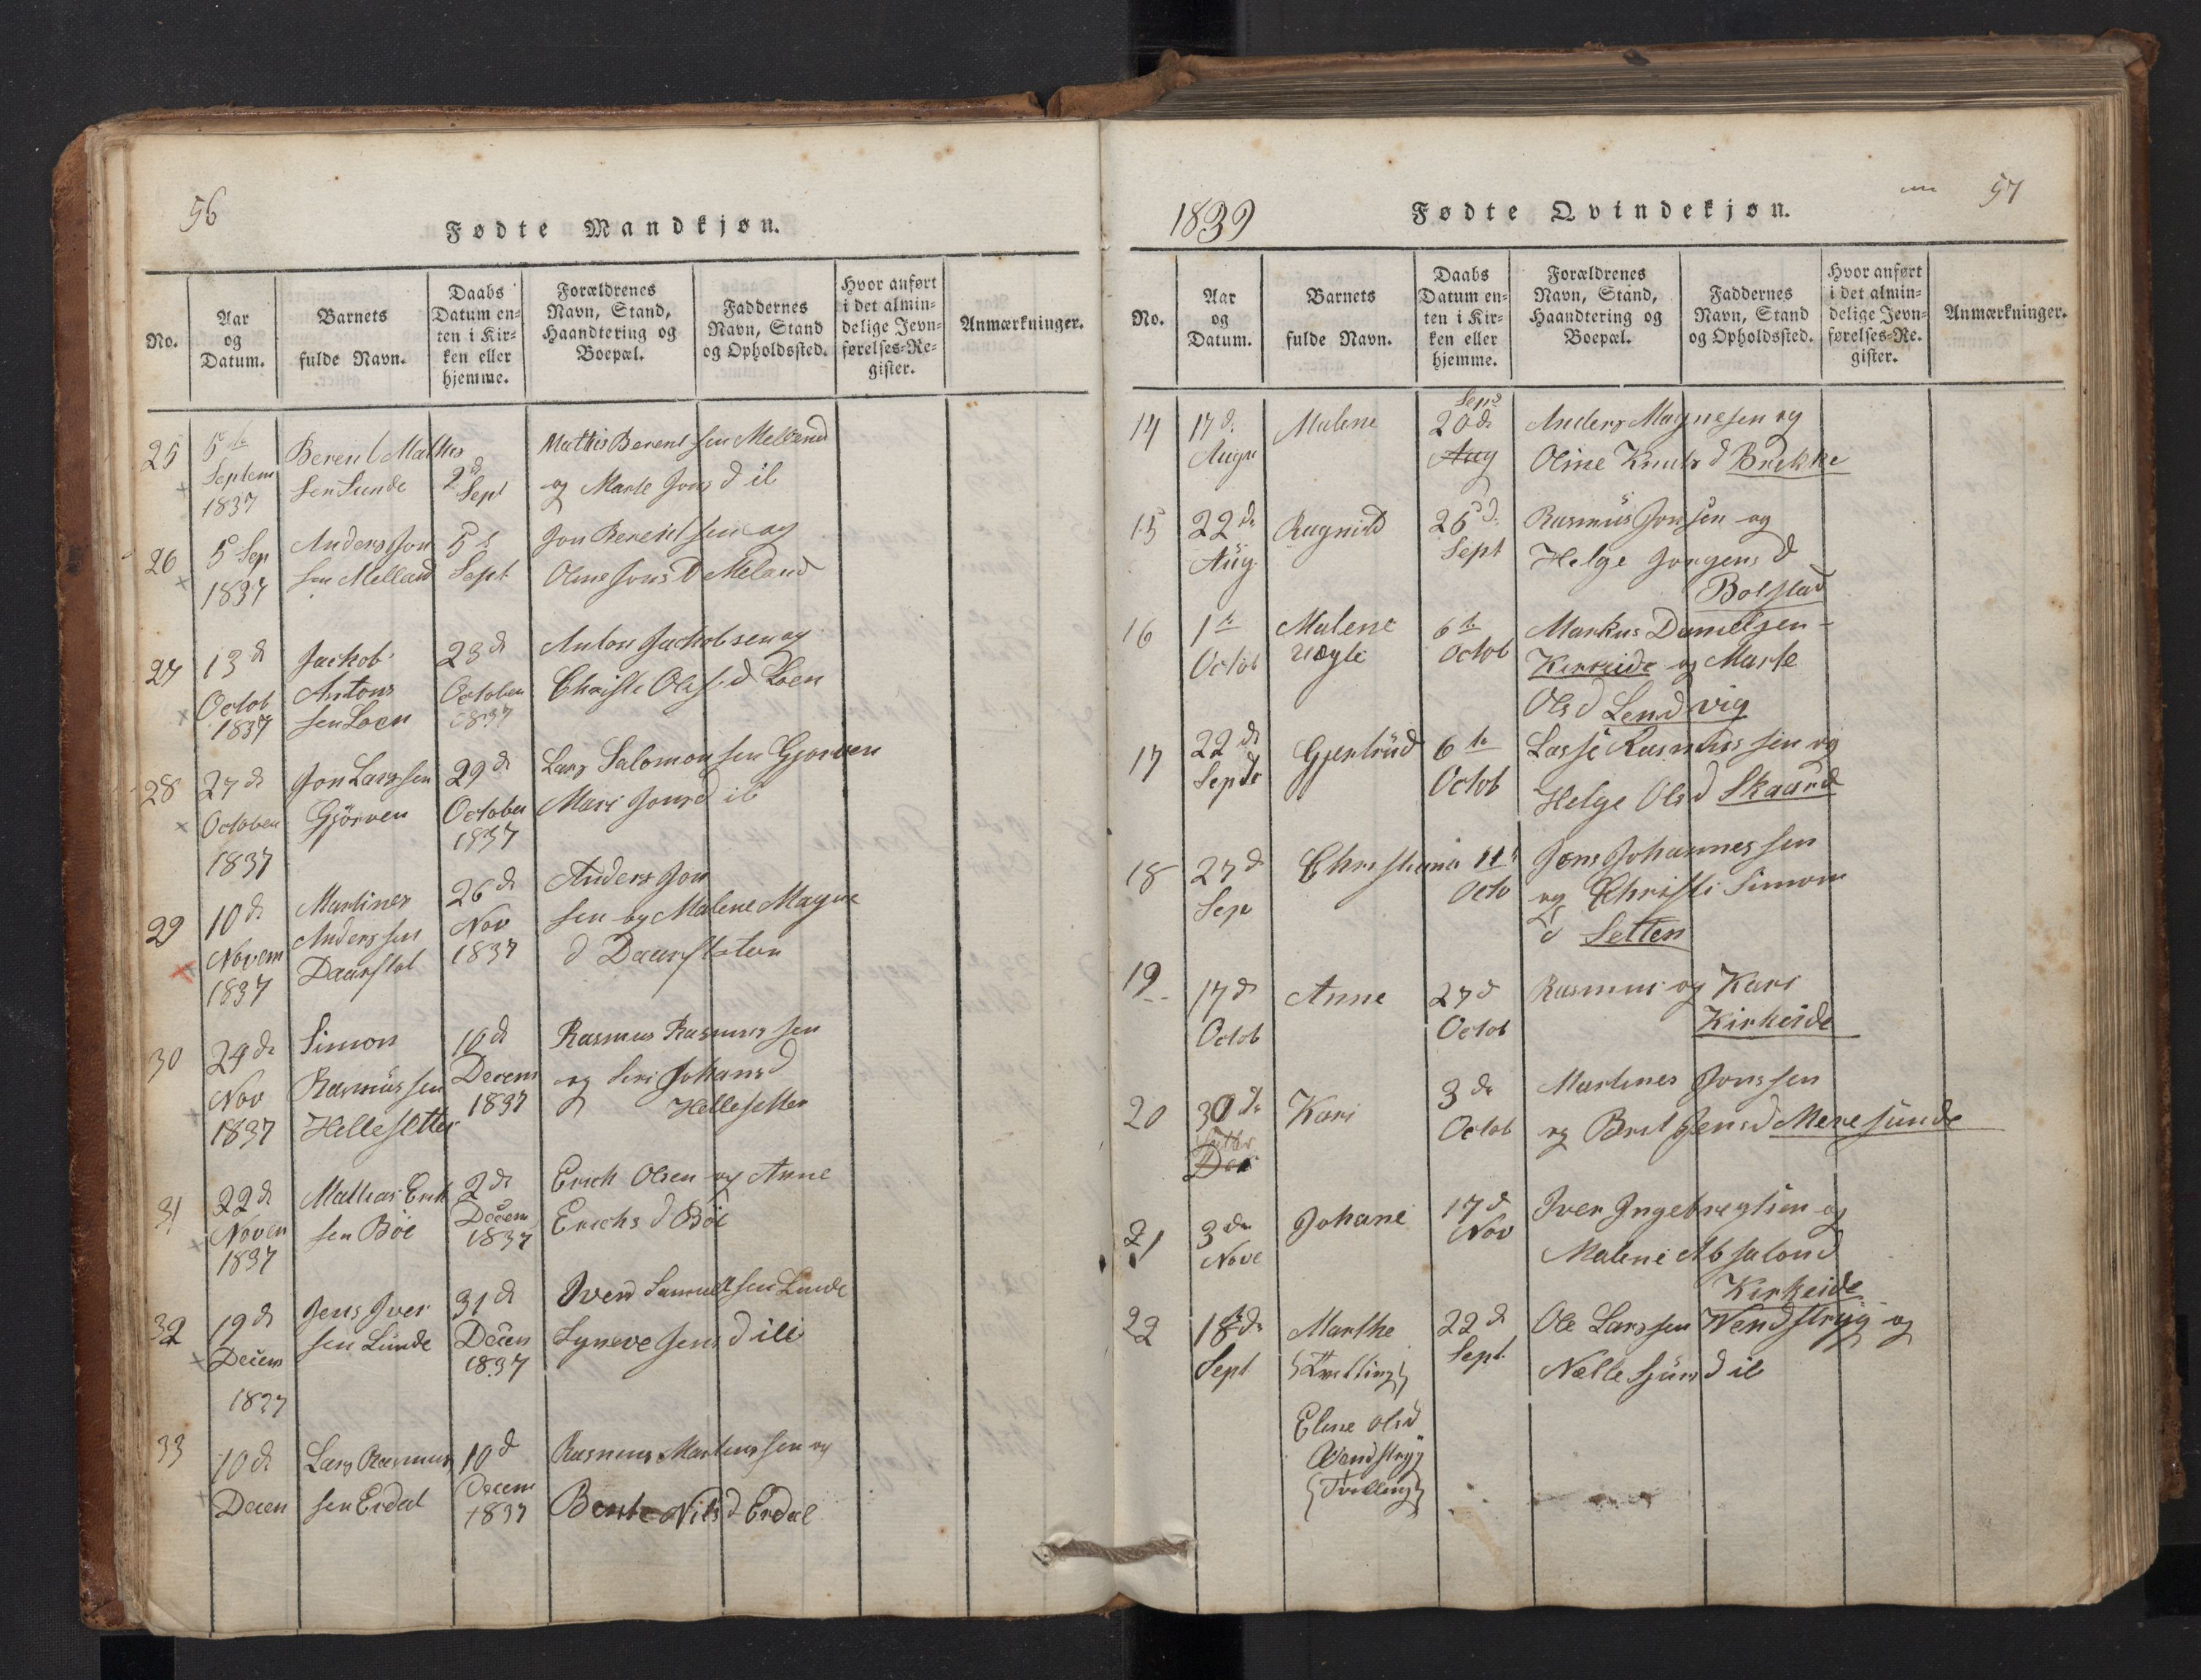 56
Fødte Mandkjøn.
No.
Aar
og
Datum.
Barnets
fulde Navn.
Daabs
Datum en-
ten i Kir-
ken eller
hjemme.
Forældrenes
Navn, Stand,
Haandtering og
Boepæl.
Faddernes
Navn, Stand
og Opholdssted.
Hvor anført
i det almin-
delige Jevn-
førelses-Re-
gister.
Anmærkninger.
25
5te
Septem
1837
Berent Mathis
sen Sunde
2d
Sept
Mattis Berent sen Melland
og Marte Jons d il
26
5 Sep
1837
Anders Jon
sen Melland
5
Sept
Jon Berent sen og
Oline Jons d Meland
27
13 d
Octob
1837
Jackob
Antons
sen Loen
23 d
October
1837
Anton Jackobsen og
Christi Ols d Loen
28
27 d
October
1837
Jon Larssen
Gjörven
29 d
October
1837
Lars Salomon sen Gjorven
Mari Jons d il
29
10 d
Novem
1837
Martines
Anders sen
Daurstol
26 d
Nov
1837
Anders Jon
sen og Malene Magne
d Daurstolen
30
24 de
Nov
1837
Simon
Rasmüs sen
Hellesetter
10 d
Decem
1837
Rasmus Rasmus sen
og Siri Johans d
Hellesetter
31
22 d
Novem
1837
Mathias Erik
sen Böe
2 de
Decem
1837
Erich Olsen og Anne
Erichs d Böe
32
19 d
Decem
1837
Jens Iver
sen Lünde
31 d
Decem
1837
Iver Samuel sen Lunde
Syneve Jens d ili
33
10 d
Decem
Lars Rasmus
sen Erdal
10 d
Decem
1837
Rasmus Martinus sen og
Bente Nils d Erdal
1839
Fødte Qvindekjøn.
57
No.
Aar
og
Datum.
Barnets
fulde Navn.
Daabs
Datum en-
ten i Kir-
ken eller
hjemme.
Forældrenes
Navn, Stand,
Haandtering og
Boepæl.
Faddernes
Navn, Stand
og Opholdssted.
Hvor anført
i det almin-
delige Jevn-
førelses-Re-
gister.
Anmærkninger.
14
17 d
Augu
Malene
Sept
20 de
Aug
Anders Magnesen og
Oline Knuts d Brekke
15
22 de
Aüg
Ragnild
25 d
Sept
Rasmüs Jonsen og
Helge Jorgens d
Bolstad
16
1te
Octob
Malene
uægte
6te
Octob
Markus Danielsen -
Kirkeide og Marte
Ols d Lendvig
17
22 de
Septr
Gjertrüd
6te
Octob
Lasse Rasmus sen og
Helge Ols d Skaard
18
27 d
Sep
Christiana
11te
Octo
Jens Johannes sen
og Christi Simon
d Setten
19
17 d
Octob
Anne
27 d
Octob
Rasmus og Kari
Kirkeide
20
30 de
Dec
Kari
3 de
Octob
Martines Jons sen
og Brit Jens d Meresunde
21
3 de
Nove
Johane
17 d
Nov
Iver Ingebregtsen og
Malene Absalon d
Kirkeide
22
18 de
Sept
Marthe
{Tvelling}
Eline Ols d
Vendstryg
{Tvelling}
22 d
Sept
Ole Larssen Wendstryg og
Nelle Sjur d il